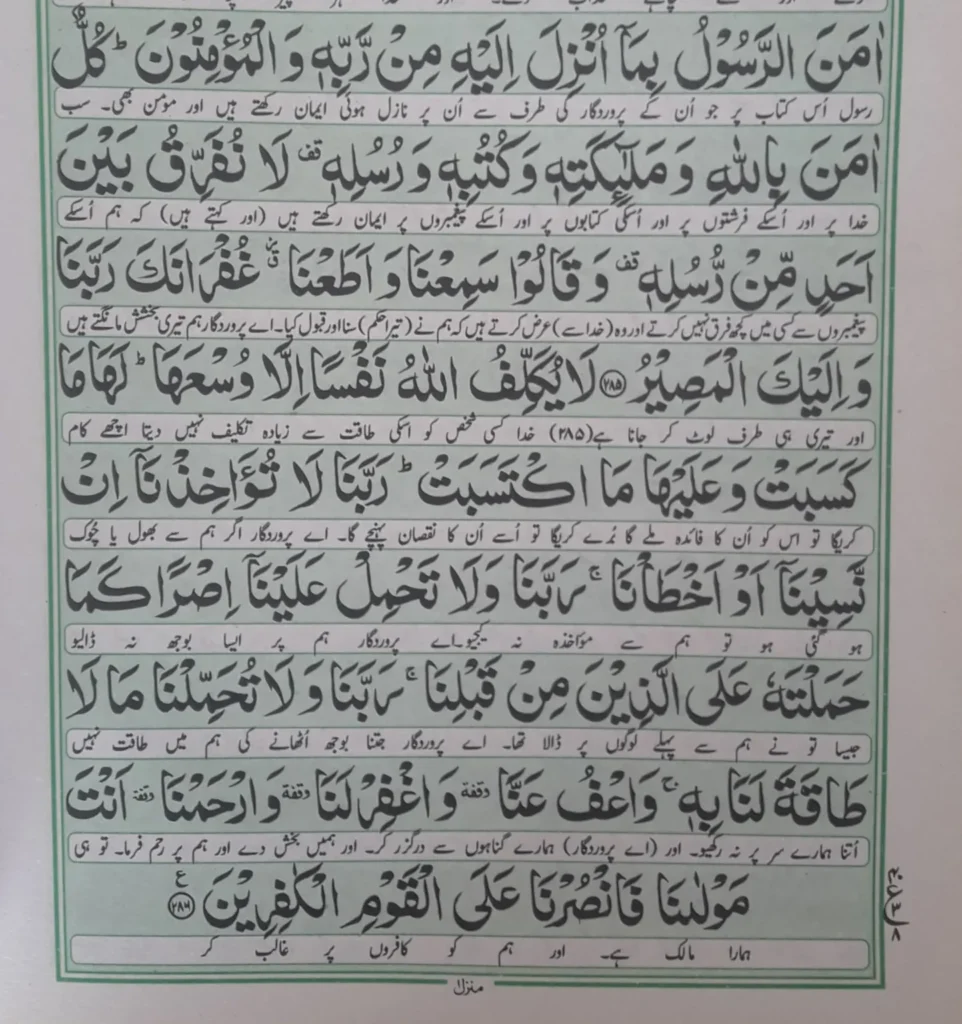 اٰمَنَ الرَّسُوْلُ بِمَاۤ اُنْزِلَ اِلَيْهِ مِنْ رَّبِّهٖ وَ الْمُؤْمِنُوْنَ ؕ كُلٌّ
رسول اُس کتاب پر جو اُن کے پروردگار کی طرف سے اُن پر نازل ہوئی ایمان رکھتے ہیں اور مومن بھی۔ سب
اٰمَنَ بِاللّٰهِ وَ مَلٰٓىِٕكَتِهٖ وَ كُتُبِهٖ وَ رُسُلِهٖ قف لَا نُفَرِّقُ بَيْنَ
خدا پر اور اُسکے فرشتوں پر اور اُسکی کتابوں پر اور اُسکے پیغمبروں پر ایمان رکھتے ہیں (اور کہتے ہیں) کہ ہم اُسکے
اَحَدٍ مِّنْ رُّسُلِهٖ قف وَ قَالُوْا سَمِعْنَا وَ اَطَعْنَا غُفْرَانَكَ رَبَّنَا
پیغمبروں سے کسی میں کچھ فرق نہیں کرتے اور وہ (خدا سے) عرض کرتے ہیں کہ ہم نے (تیرا حکم) سنا اور قبول کیا۔ اے پروردگار ہم تیری بخشش مانگتے ہیں
وَ اِلَيْكَ الْمَصِيْرُ ۲۸۵ لَا يُكَلِّفُ اللّٰهُ نَفْسًا اِلَّا وُسْعَهَا ؕ لَهَا مَا
اور تیری ہی طرف لوٹ کر جانا ہے(۲۸۵) خدا کسی شخص کو اسکی طاقت سے زیادہ تکلیف نہیں دیتا اچھے کام
كَسَبَتْ وَ عَلَيْهَا مَا اكْتَسَبَتْ ؕ رَبَّنَا لَا تُؤَاخِذْنَاۤ اِنْ
کریگا تو اس کو اُن کا فائدہ ملے گا بُرے کریگا تو اُسے اُن کا نقصان پہنچے گا۔ اے پروردگار اگر ہم سے بھول یا چُوک
نَّسِيْنَاۤ اَوْ اَخْطَاْنَا ۚ رَبَّنَا وَ لَا تَحْمِلْ عَلَيْنَاۤ اِصْرًا كَمَا
ہو گئی ہو تو ہم سے مؤاخذہ نہ کیجیو۔اے پروردگار ہم پر ایسا بوجھ نہ ڈالیو
حَمَلْتَهٗ عَلَى الَّذِيْنَ مِنْ قَبْلِنَا ۚ رَبَّنَا وَ لَا تُحَمِّلْنَا مَا لَا
جیسا تو نے ہم سے پہلے لوگوں پر ڈالا تھا۔ اے پروردگار جتنا بوجھ اُٹھانے کی ہم میں طاقت نہیں
طَاقَةَ لَنَا بِهٖ ۚ وَ اعْفُ عَنَّا وقفة وَ اغْفِرْ لَنَا وقفة وَ ارْحَمْنَا وقفة اَنْتَ
اُتنا ہمارے سر پر نہ رکھیو۔ اور (اے پروردگار) ہمارے گناہوں سے درگزر کر۔ اور ہمیں بخش دے اور ہم پر رحم فرما۔ تو ہی
مَوْلٰىنَا فَانْصُرْنَا عَلَى الْقَوْمِ الْكٰفِرِيْنَ ۲۸۶ ع
ہمارا مالک ہے۔ اور ہم کو کافروں پر غالب کر
منزل